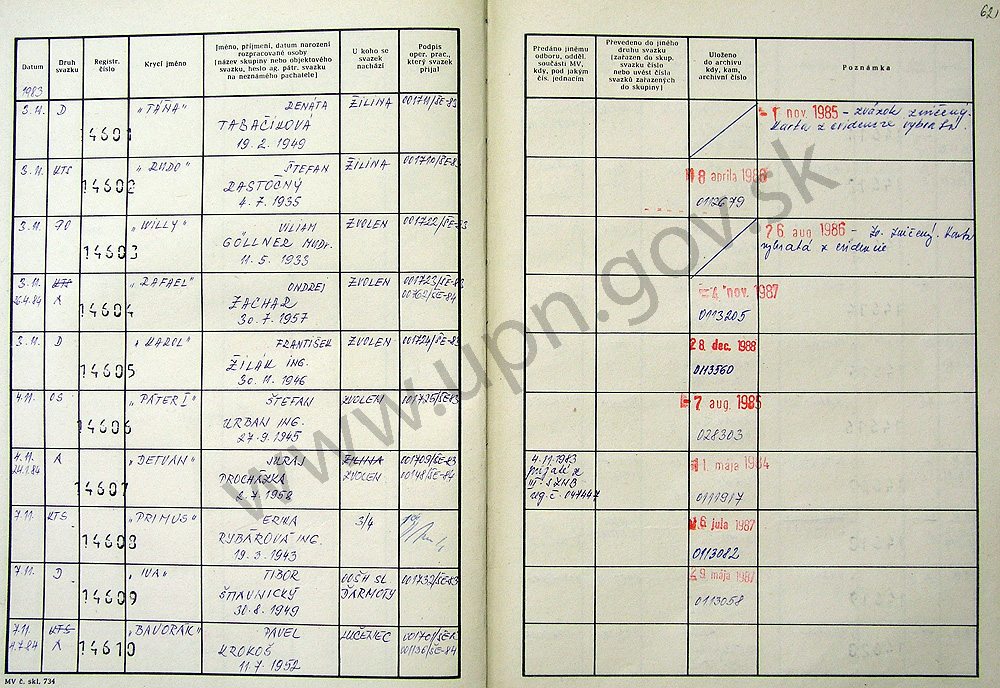 62
Datum
Druh svazku
Registr. číslo
Krycí jméno
Jméno, příjmení, datum narození
rozpracované osoby
(název skupiny nebo objektového
svazku, heslo ag. pátr. svazku
na neznámého pachatele)
U koho se
svazek
nachází
Podpis
oper. prac.,
který svazek
přijal
Předáno jinému
odboru, odděl.
součásti MV,
kdy, pod jakým
čís. jednacím
Převedeno do jiného
druhu svazku
(zařazen do skup.
svazku číslo
nebo uvést čísla
svazků zařazených
do skupiny)
Uloženo
do archivu
kdy, kam,
archivní číslo
Poznámka
1983
3.11. D „TÁŇA" RENÁTA ŽILINA 001711/ŠE-83
14601 TABAČÍKOVÁ
19. 2. 1949
1 nov. 1985 - zväzok zničený.
Karta z evidencie vybratá.
3.11. KTS „RUDO" ŠTEFAN ŽILINA 001710/ŠE-83
14602 RASTOČNÝ
4. 7. 1935
8 apríla 1988
0112679
3.11. „WILLY" VILIAM ZVOLEN 001722/ŠE-83
14603 GÖLLNER MUDr.
11. 5. 1933
26 aug 1986 - Zv. zničený. Karta
vybratá z evidencie
3.11. KTS „RAFAEL" ONDREJ ZVOLEN 001723/ŠE-83
A 14604 ZACHAR
30. 7. 1957
4 nov. 1987
0113205
3.11. D „KAROL" FRANTIŠEK ZVOLEN 001724/ŠE-83
14605 ŽILÁK ING.
30. 11. 1946
28. dec. 1988
0113560
4.11. OS „PÁTER I" ŠTEFAN ZVOLEN 001725/ŠE-83
14606 URBAN ING.
27. 9. 1945
7 aug. 1985
028303
4.11. A „DETVAN" JURAJ ŽILINA 001709/ŠE-83
24.1.84 14607 PROCHÁZKA ZVOLEN 00148/ŠE-84
2. 7. 1952
4.11.1983
prijaté z
11. mája 1984
0111917
7.11. KTS „PRIMUS" ERIKA 3/4
14608 RYBÁROVÁ ING.
19. 3. 1943
6 júla 1987
0113082
7.11. D „IVA" TIBOR OOŠH SL. 001732/ŠE-83
14609 ŠTIAVNICKÝ ĎARMOTY
30. 8. 1949
29. mája 1987
0113058
7.11. KTS „BAVORÁK" PAVEL LUČENEC
1.7.84 A 14610 KROKOŠ 001136/ŠE-84
11. 7. 1952
MV č. skl. 734
www.upn.gov.sk